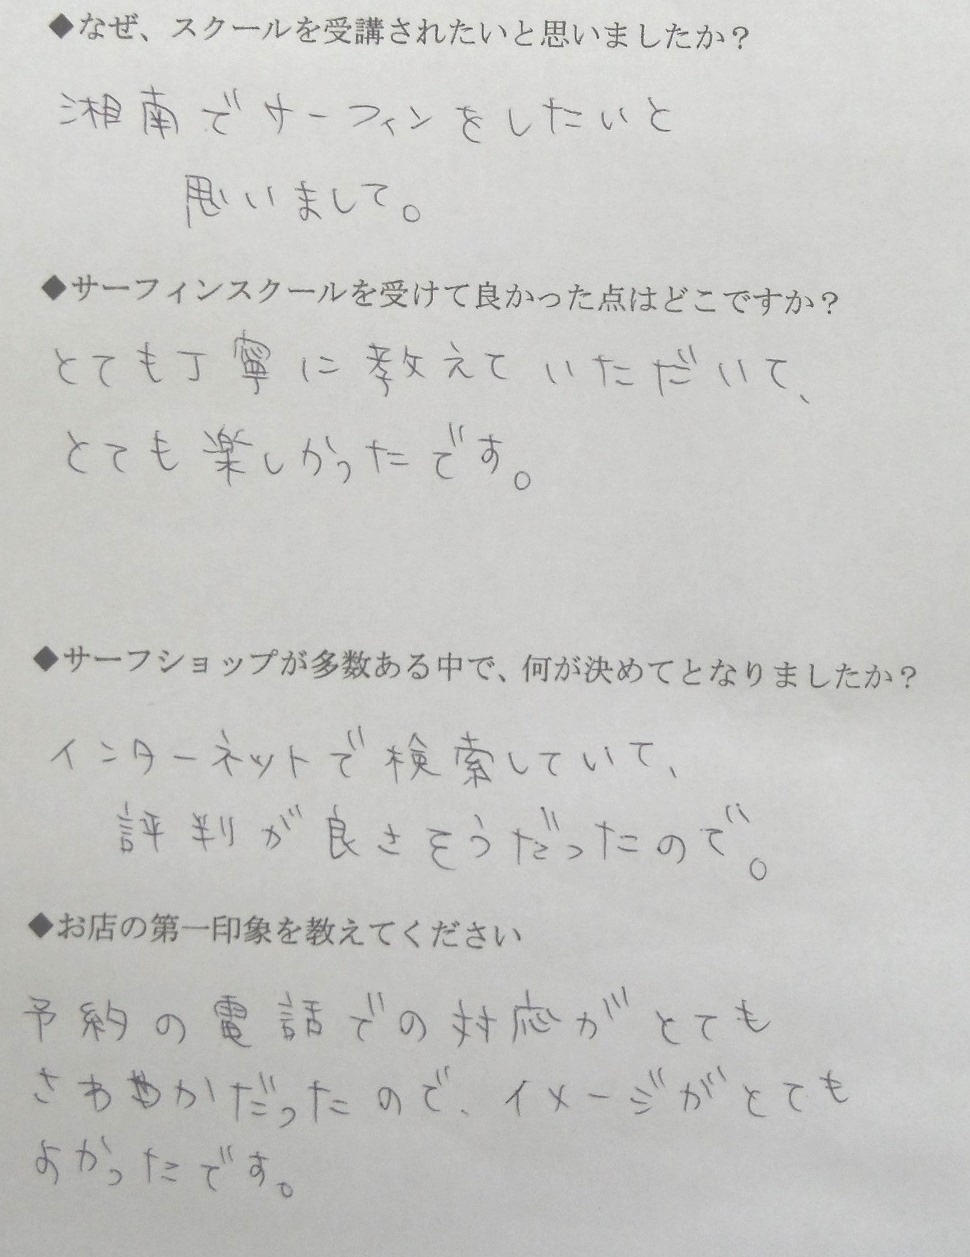 ◆なぜ、スクールを受講されたいと思いましたか？
湘南でサーフィンをしたいと
思いまして。
◆サーフィンスクールを受けて良かった点はどこですか？
とても丁寧に教えていただいて、
とても楽しかったです。
◆サーフショップが多数ある中で、何が決めてとなりましたか？
インターネットで検索していて、
評判が良さそうだったので。
◆お店の第一印象を教えてください
予約の電話での対応がとても
さわやかだったので、イメージがとても
よかったです。